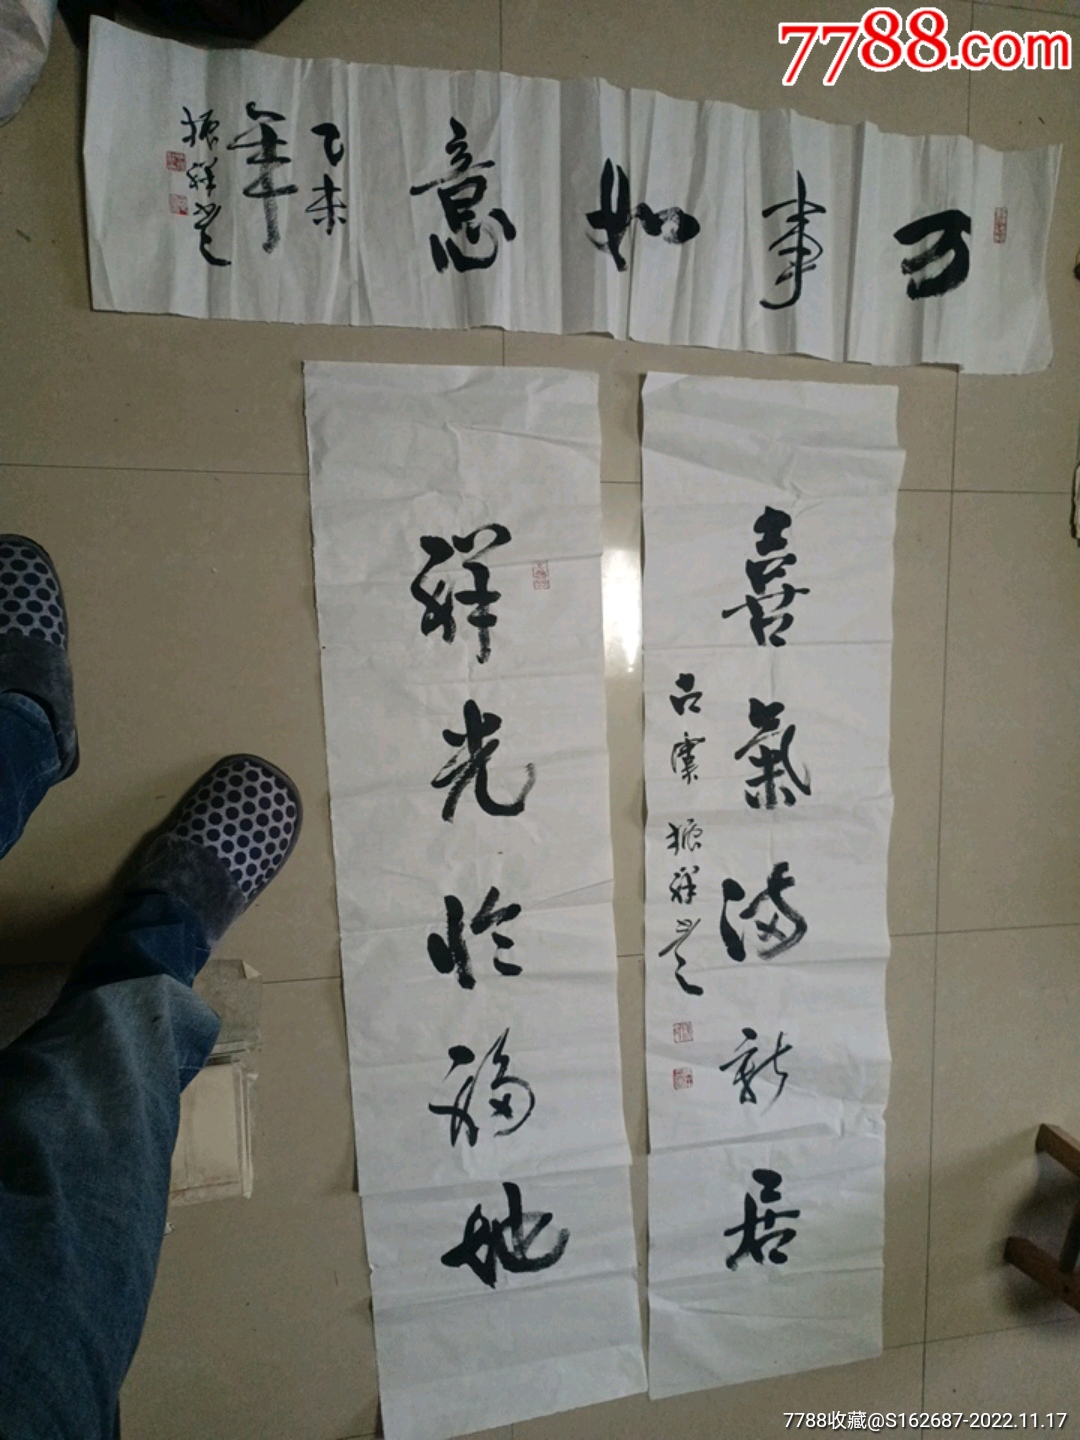 7788.com
万事如意
乙未
年
振祥书
祥光临福地
喜气满新居
古虞 振祥书
7788收藏@S162687-2022.11.17